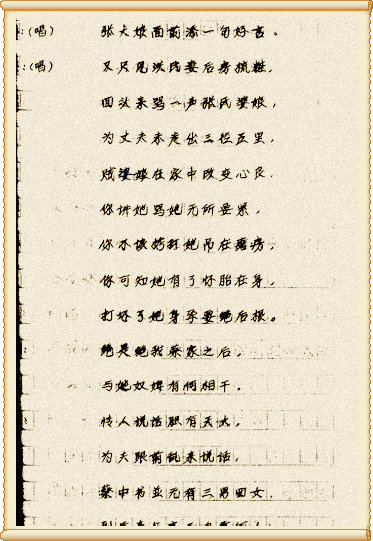 :(唱) 张大娘面前添一句好言。
:(唱) 又只见张氏妻后房梳粧，
回头来骂一声张氏婆娘，
为丈夫未走出三径五里，
贱婆娘在家中改变心良。
你讲她骂她无所要紧，
你不该拷打她吊在磨房，
你可知她有了好胎在身，
打坏了她身孕要绝后根。
绝是绝我蔡家之后，
与她奴婢有何相干。
恃人说话胆有天大，
为夫跟前乱来说话，
蔡中书並无有三男四女，